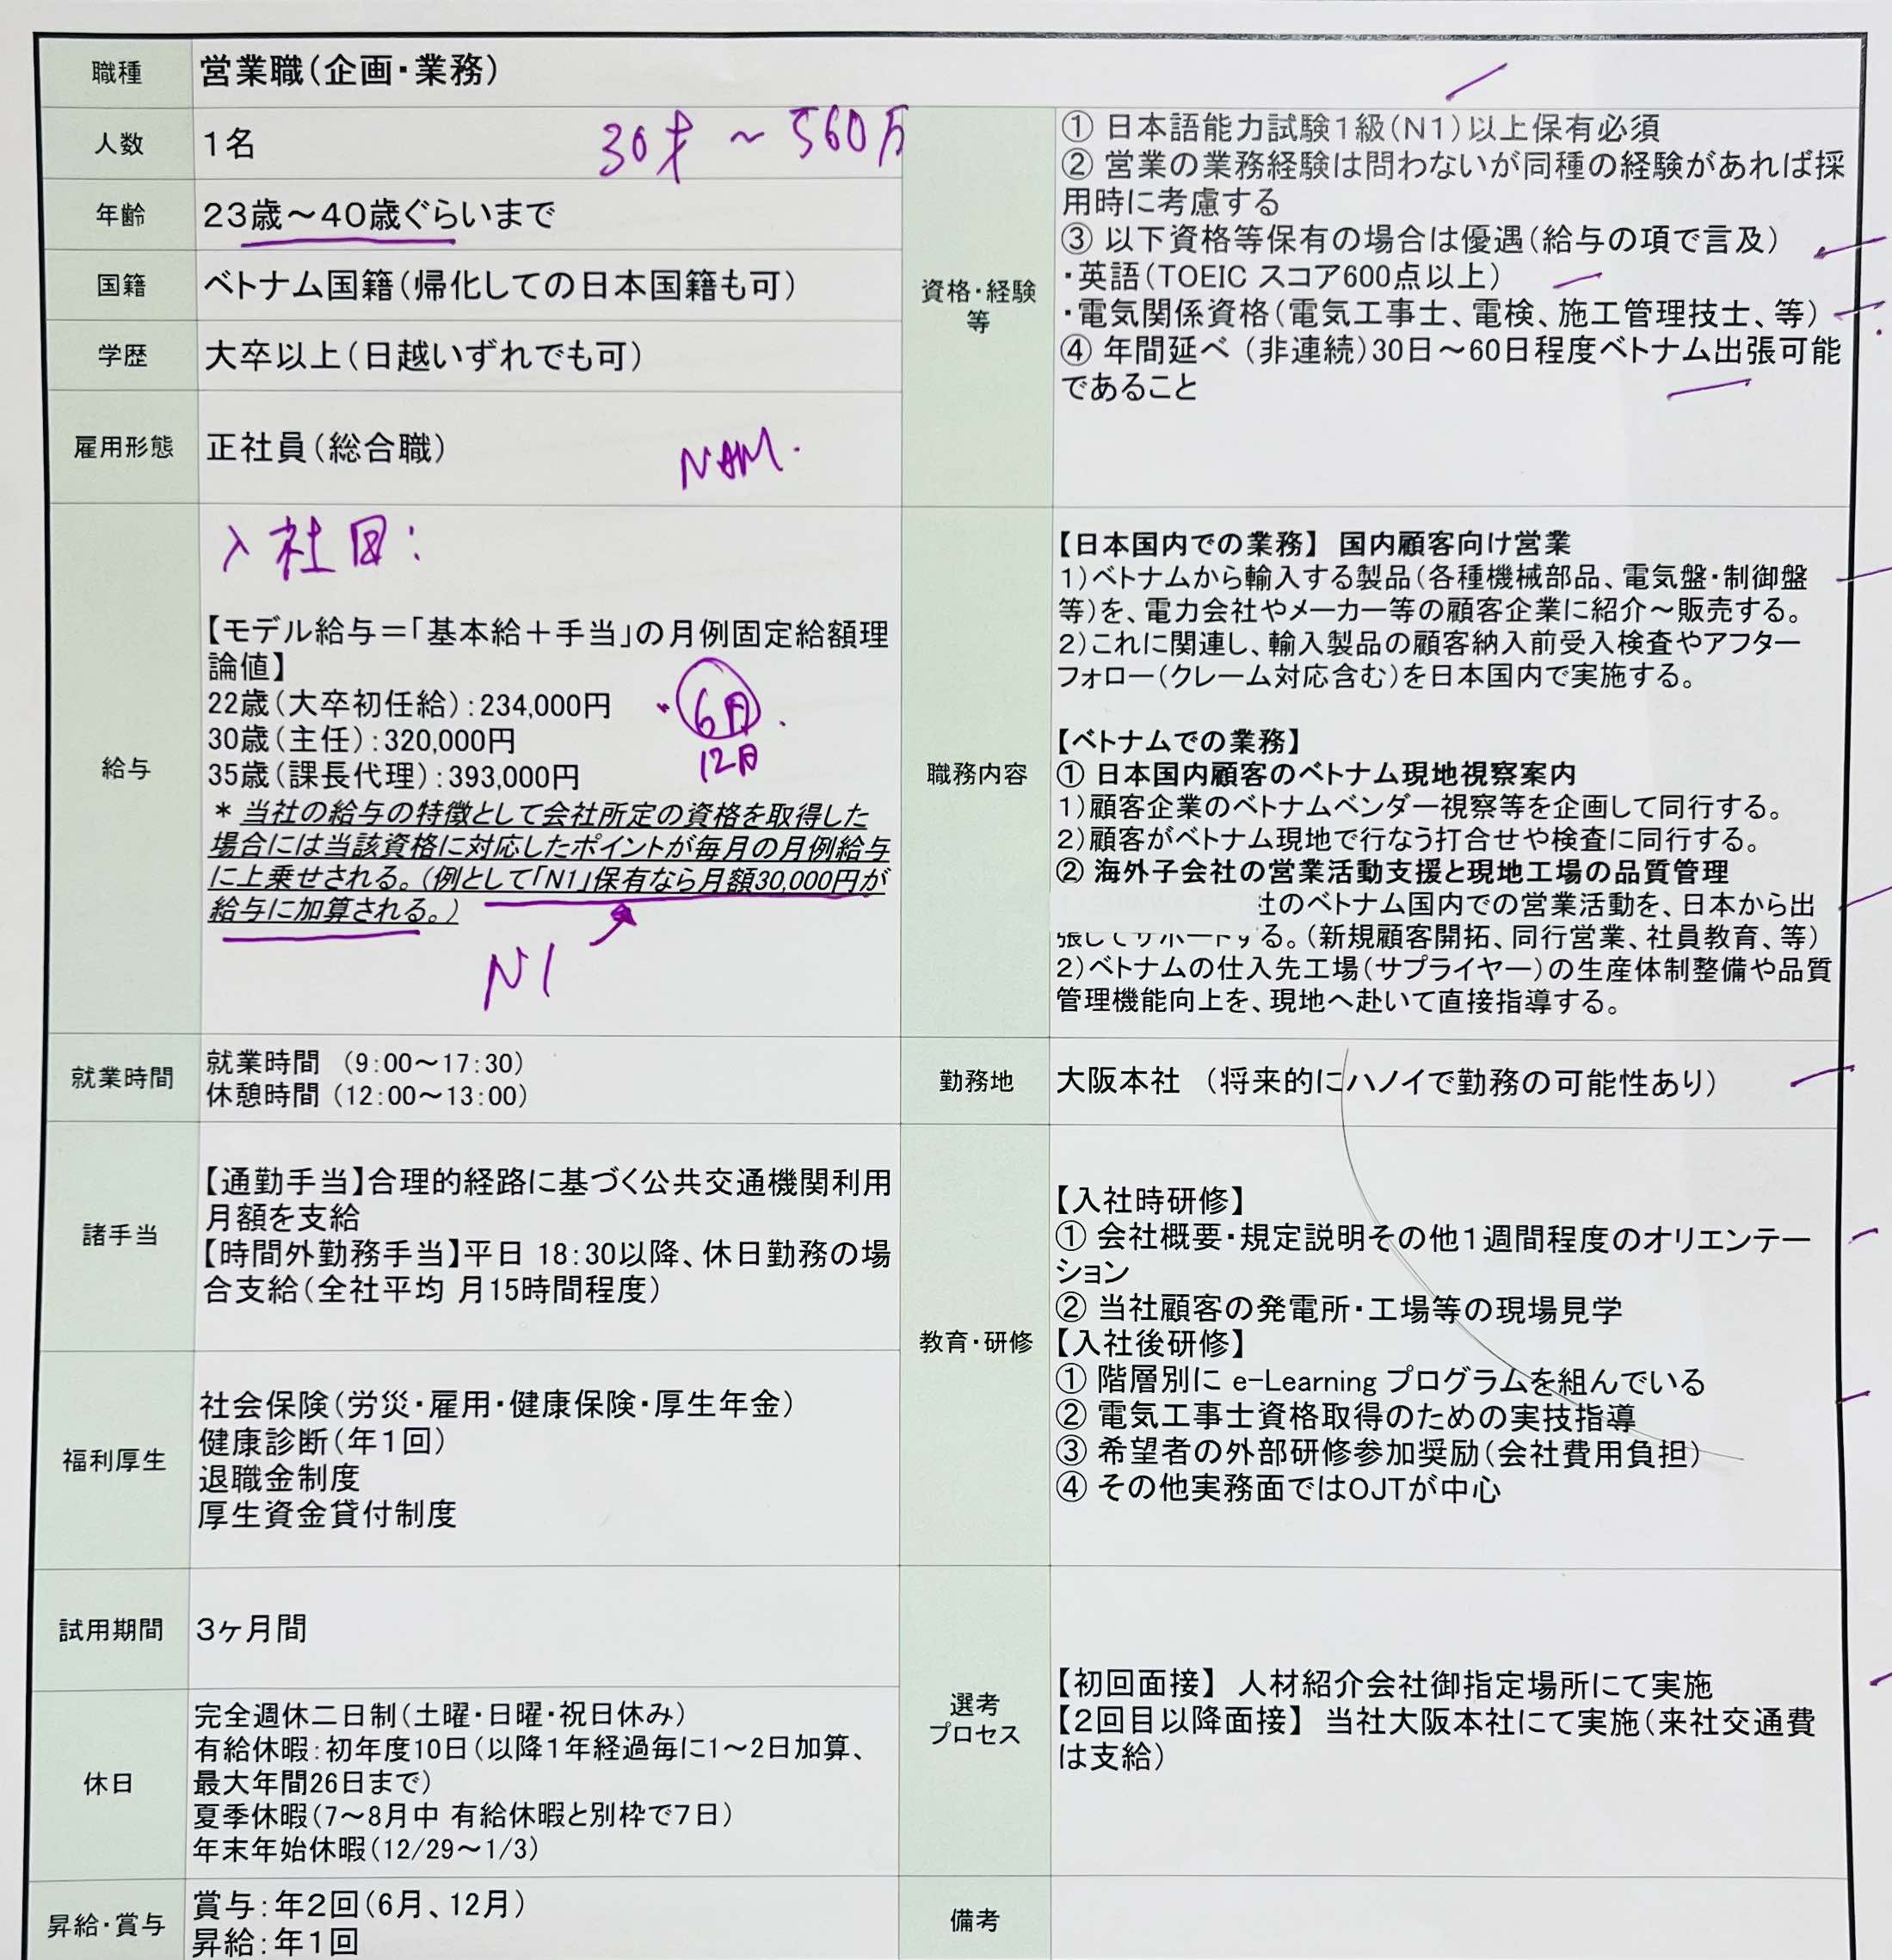 職種
営業職(企画・業務)
人数
1名
30才 ~ 560万
年齢
23歳~40歳ぐらいまで
国籍
ベトナム国籍(帰化しての日本国籍も可)
学歴
大卒以上(日越いずれでも可)
雇用形態
正社員(総合職)
NAM.
給与
【モデル給与=「基本給+手当」の月例固定給額理
論値】
22歳(大卒初任給):234,000円
30歳(主任):320,000円
35歳(課長代理):393,000円
6月
12月
* 当社の給与の特徴として会社所定の資格を取得した
場合には当該資格に対応したポイントが毎月の月例給与
に上乗せされる。(例として「N1」保有なら月額30,000円が
給与に加算される。)
N1
就業時間
就業時間 (9:00~17:30)
休憩時間 (12:00~13:00)
諸手当
【通勤手当】合理的経路に基づく公共交通機関利用
月額を支給
【時間外勤務手当】平日 18:30以降、休日勤務の場
合支給(全社平均 月15時間程度)
福利厚生
社会保険(労災・雇用・健康保険・厚生年金)
健康診断(年1回)
退職金制度
厚生資金貸付制度
試用期間
3ヶ月間
休日
完全週休二日制(土曜・日曜・祝日休み)
有給休暇:初年度10日(以降1年経過毎に1~2日加算、
最大年間26日まで)
夏季休暇(7~8月中 有給休暇と別枠で7日)
年末年始休暇(12/29~1/3)
昇給・賞与
賞与:年2回(6月、12月)
昇給:年1回
資格・経験
等
① 日本語能力試験1級(N1)以上保有必須
② 営業の業務経験は問わないが同種の経験があれば採
用時に考慮する
③ 以下資格等保有の場合は優遇(給与の項で言及)
・英語(TOEIC スコア600点以上)
・電気関係資格(電気工事士、電検、施工管理技士、等)
④ 年間延べ (非連続)30日~60日程度ベトナム出張可能
であること
職務内容
【日本国内での業務】 国内顧客向け営業
1)ベトナムから輸入する製品(各種機械部品、電気盤・制御盤
等)を、電力会社やメーカー等の顧客企業に紹介~販売する。
2)これに関連し、輸入製品の顧客納入前受入検査やアフター
フォロー(クレーム対応含む)を日本国内で実施する。
【ベトナムでの業務】
① 日本国内顧客のベトナム現地視察案内
1)顧客企業のベトナムベンダー視察等を企画して同行する。
2)顧客がベトナム現地で行なう打合せや検査に同行する。
② 海外子会社の営業活動支援と現地工場の品質管理
社のベトナム国内での営業活動を、日本から出
張してサポートする。(新規顧客開拓、同行営業、社員教育、等)
2)ベトナムの仕入先工場(サプライヤー)の生産体制整備や品質
管理機能向上を、現地へ赴いて直接指導する。
勤務地
大阪本社 (将来的にハノイで勤務の可能性あり)
教育・研修
【入社時研修】
① 会社概要・規定説明その他1週間程度のオリエンテー
ション
② 当社顧客の発電所・工場等の現場見学
【入社後研修】
① 階層別に e-Learning プログラムを組んでいる
② 電気工事士資格取得のための実技指導
③ 希望者の外部研修参加奨励(会社費用負担)
④ その他実務面ではOJTが中心
選考
プロセス
【初回面接】 人材紹介会社御指定場所にて実施
【2回目以降面接】 当社大阪本社にて実施(来社交通費
は支給)
備考